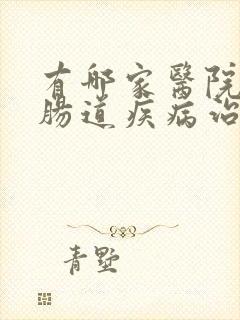 有哪家醫院
腸道疾病治
青墅